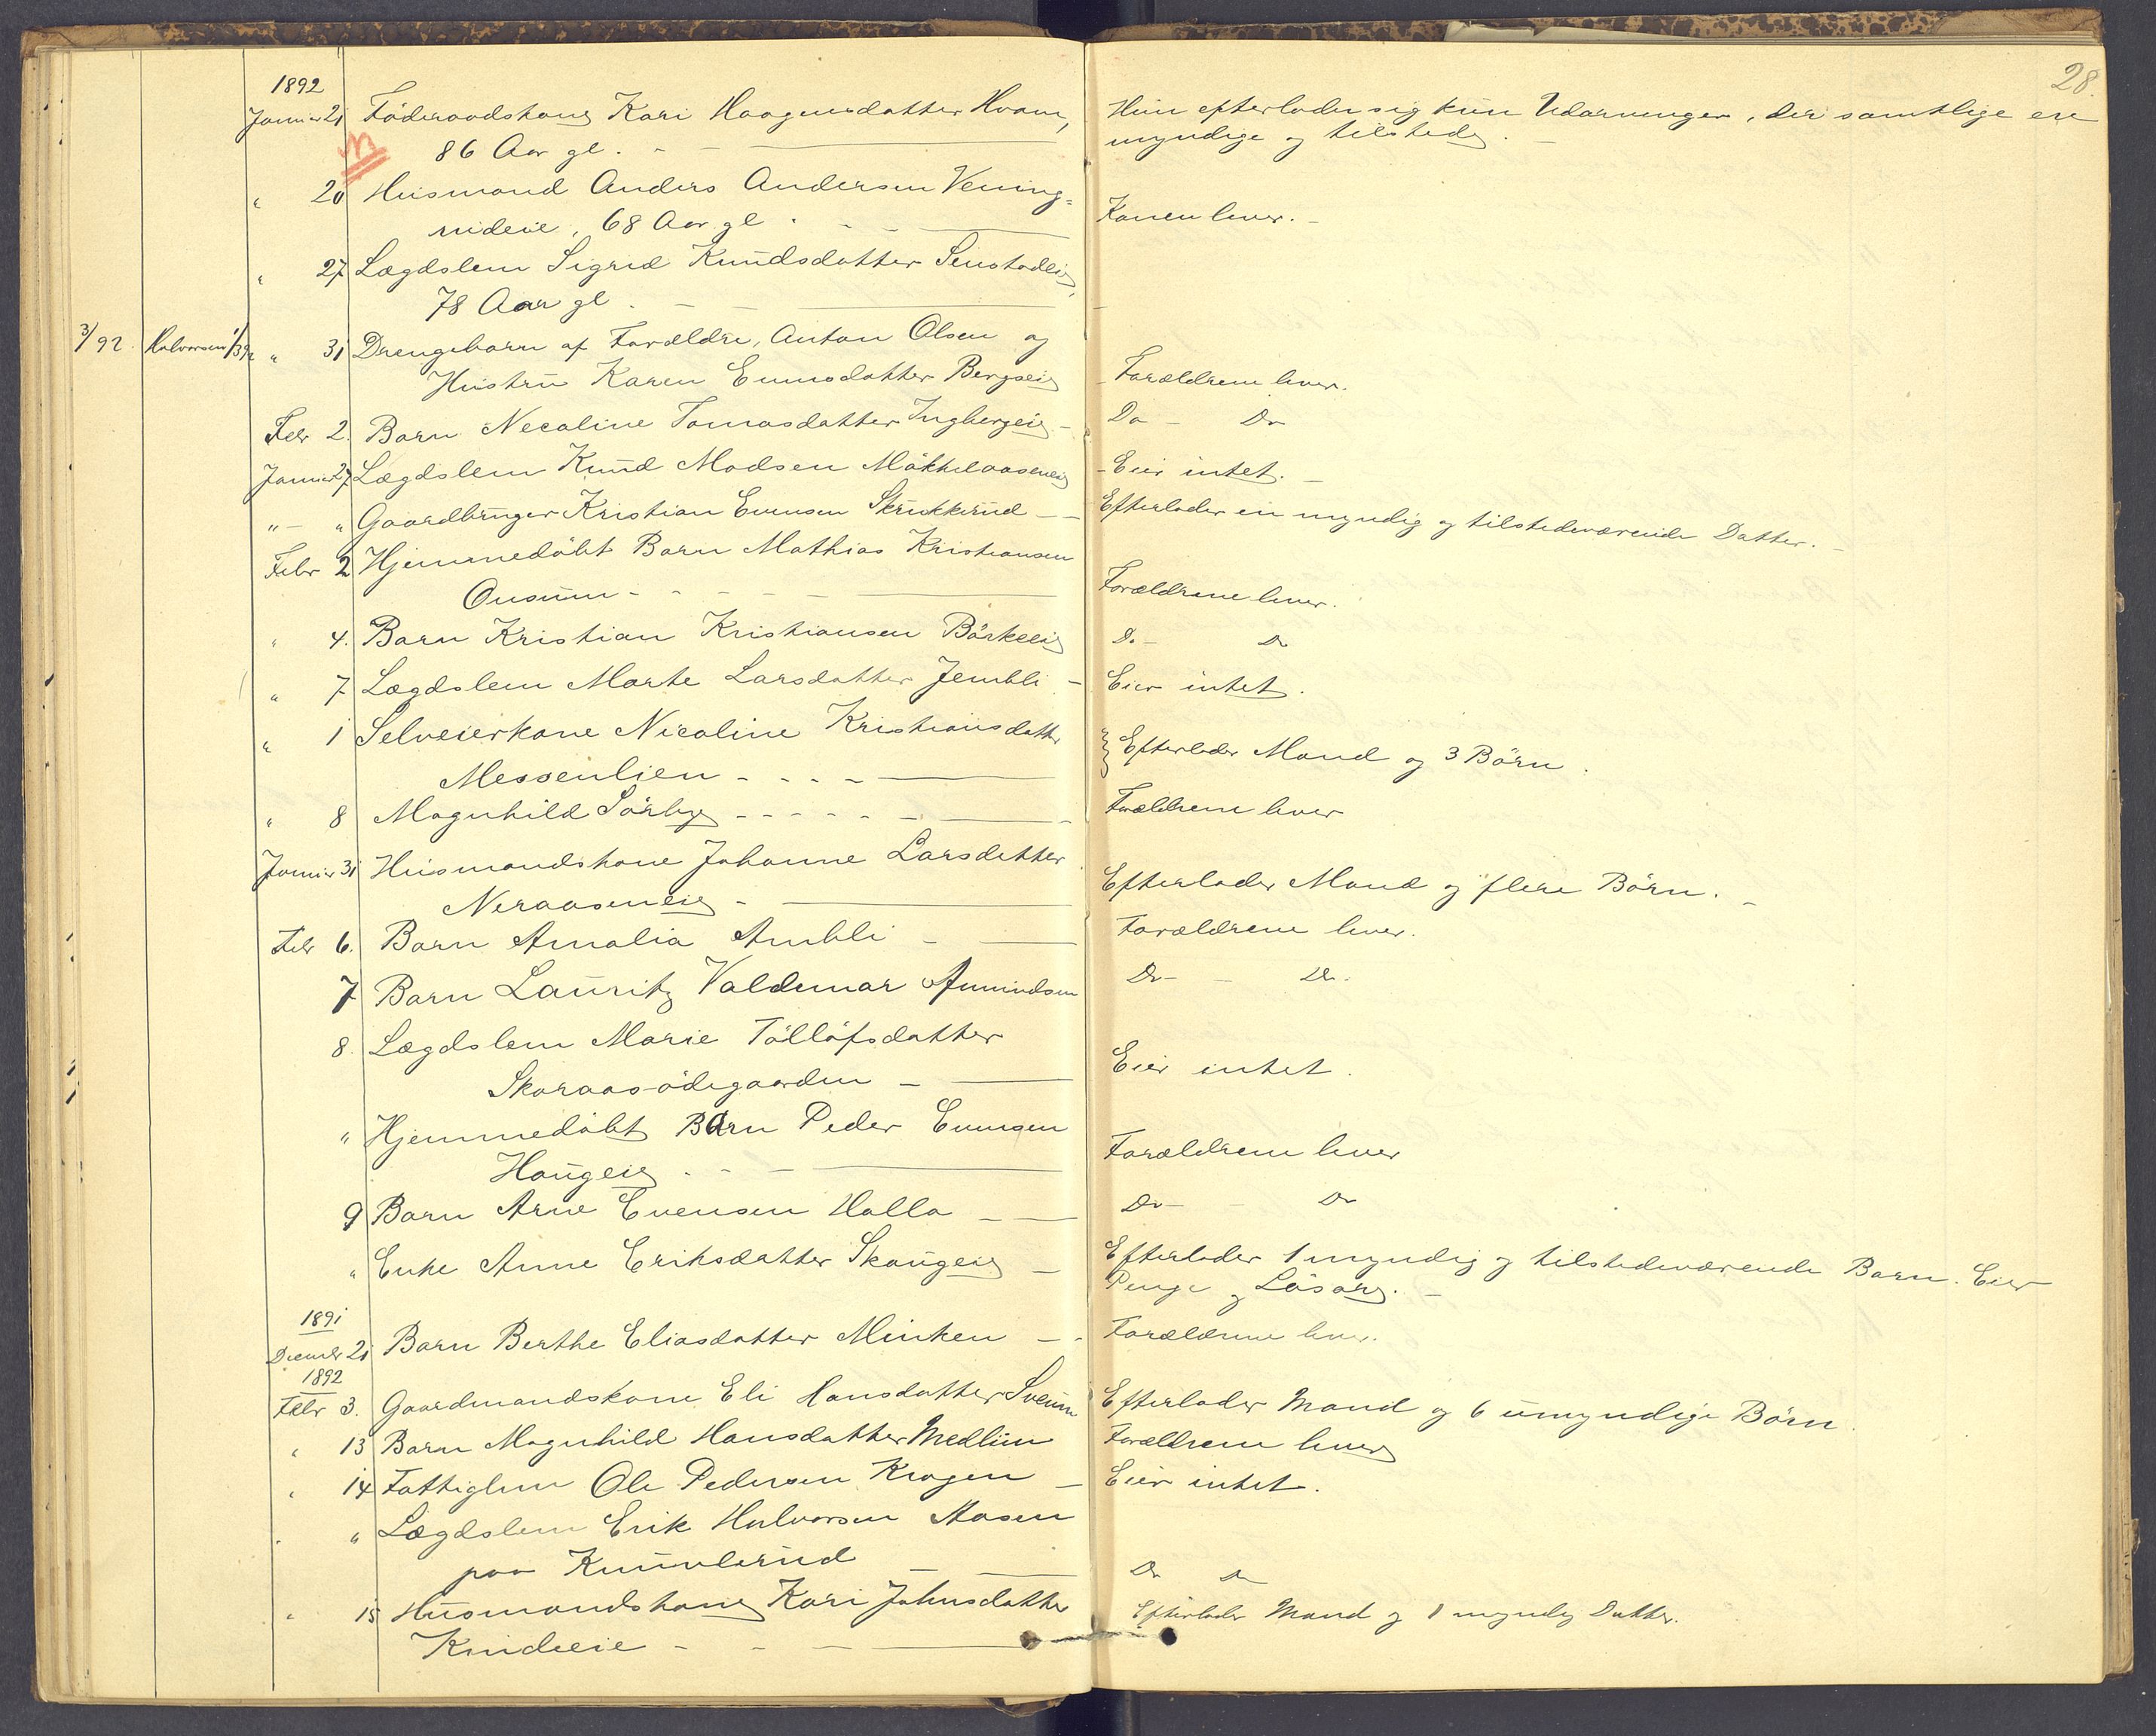 28.
1892
Januar 21 Föderaadskone Kari Haagensdatter Hvam, Hun efterlader sig kun Udarvinger, der samtlige ere
86 Aar gl. - - myndige og tilstede.
" 20 Husmand Anders Andersen Vening=
rudeie, 68 Aar gl. - - Konen lever. -
" 27 Lægdslem Sigrid Knudsdatter
78 Aar gl. - -
3/92. Halvorsen 1/3 92 " 31 Drengebarn af Forældre, Anton Olsen og
Hustru Karen Evensdatter Bergseie - Forældrene lever.
Febr 2. Barn Necoline Tomasdatter Ingbergeie - Do - Do
Januar 27 Lægdslem Knud Madsen - Eier intet. -
" - " Gaardbruger Kristian Evensen Skrukkerud - - Efterlader en myndig og tilstedeværende Datter. -
Febr 2 Hjemmedöbt Barn Mathias Kristiansen
Onsum - - - - - Forældrene lever.
" 4. Barn Kristian Kristiansen Börkeeie Do - Do
" 7 Lægdslem Marte Larsdatter Jembli - Eier intet.
" 1 Selveierkone Nicoline Kristiansdatter
Messenlien - - - - } Efterlader Mand og 3 Börn.
" 8 Magnhild Sörbye - - - - - - Forældrene lever
Januar 31 Husmandskone Johanne Larsdatter
Neraaseneie - Efterlader Mand og flere Börn. -
Febr 6. Barn Amalia Ambli - Forældrene lever.
7 Barn Lauritz Valdemar Amundsen Do - - Do.
8. Lægdslem Marie Töllöfsdatter
Skaraas-ödegaarden - Eier intet.
" Hjemmedöbt Barn Peder Evensen
Haugeie - - - Forældrene lever
9 Barn Arne Evensen Halla - - Do - - Do
" Enke Anne Eriksdatter Skaugeie - Efterlader 1 myndig og tilstedeværende Barn. Eier
Penge og Lösöre. -
1891
Decembr 21 Barn Berthe Eliasdatter Minken - - Forældrene lever.
1892
Febr 3. Gaardmandskone Eli Hansdatter Sveum Efterlader Mand og 6 umyndige Börn.
" 13 Barn Magnhild Hansdatter Medlien Forældrene lever
" 14 Fattiglem Ole Pedersen Krogen - Eier intet.
" " Lægdslem Erik Halvorsen Aasen
paa - Do Do
" 15 Husmandskone Kari Johnsdatter Efterlader Mand og 1 myndig Datter.
Kindeeie - - -